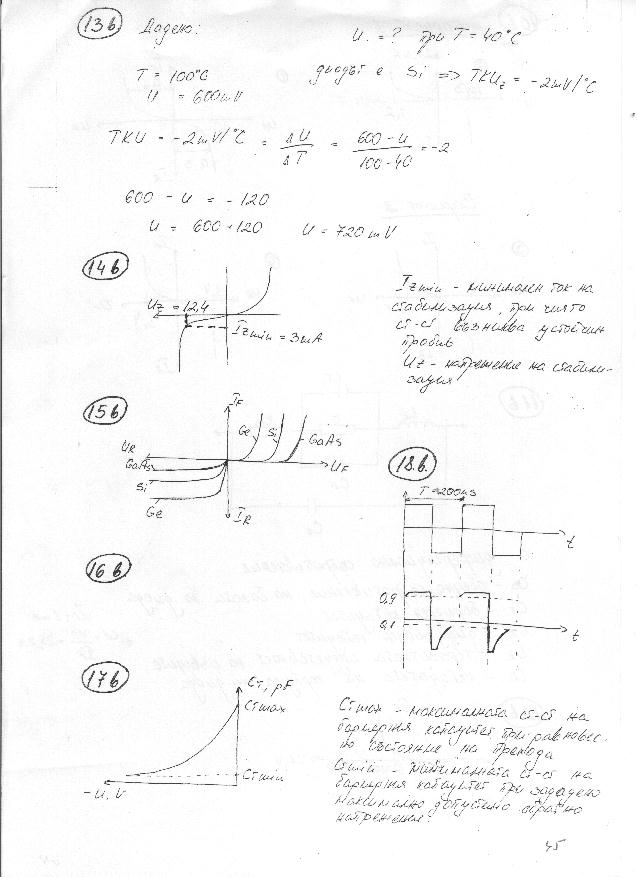 13б Дадено: U = ? при T = 40°C
T = 100°C
U = 600mV
диодът е Si => TKUz = -2mV/°C
TKU = -2mV/°C = ΔU/ΔT = (600 - U)/(100 - 40) = -2
600 - U = -120
U = 600+120 U = 720mV
14б
Uz = 12,4
Izmin = 3mA
Izmin - минимален ток на
стабилизация, при чиято
ст-ст възниква устойчив
пробив
Uz - напрежение на стабили-
зация
15б
IF
Ge Si GaAs
UR
UF
GaAs
Si
Ge
IR
18б.
T=200ns
t
0,9
0,1
t
16б
17б
Cт, pF
Cтmax
Cтmin
-U, V
Cтmax - максималната ст-ст на
бариерния капацитет при равновес-
но състояние на прехода
Cтmin - минималната ст-ст на
бариерния капацитет при зададено
максимално допустимо обратно
напрежение.
45